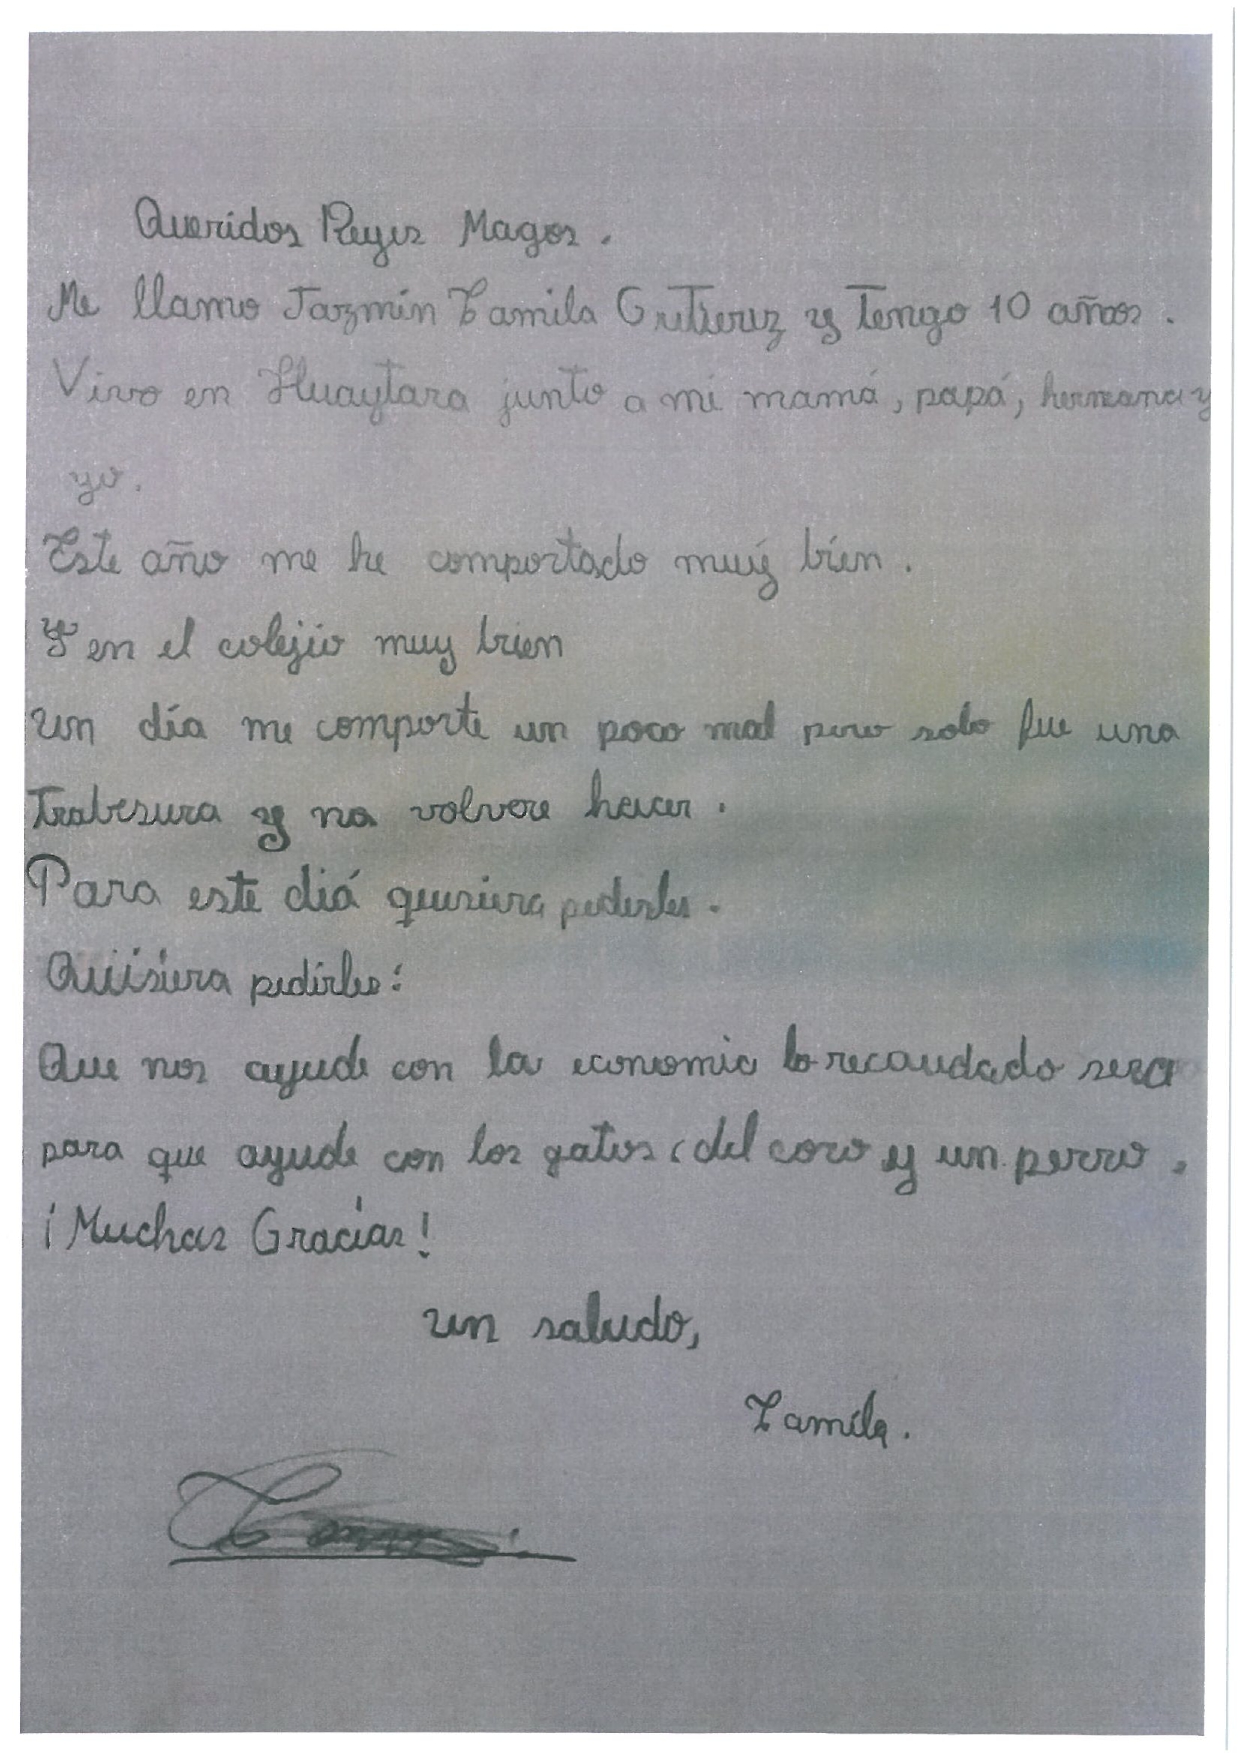 Queridos Reyes Magos.
Me llamo Jazmín Camila Gutierrez y Tengo 10 años.
Vivo en Huaytara junto a mi mamá, papá, hermana y
yo.
Este año me he comportado muy bien.
Y en el colejio muy bien
un día me comporte un poco mal pero solo fue una
Trabesura y no volvere hacer.
Para este diá quisiera pedirles.
Quisiera pedirles:
Que nos ayude con la economia lo recaudado sera
para que ayude con los gatos (del coro y un perro.
¡Muchas Gracias!
un saludo,
Camila.